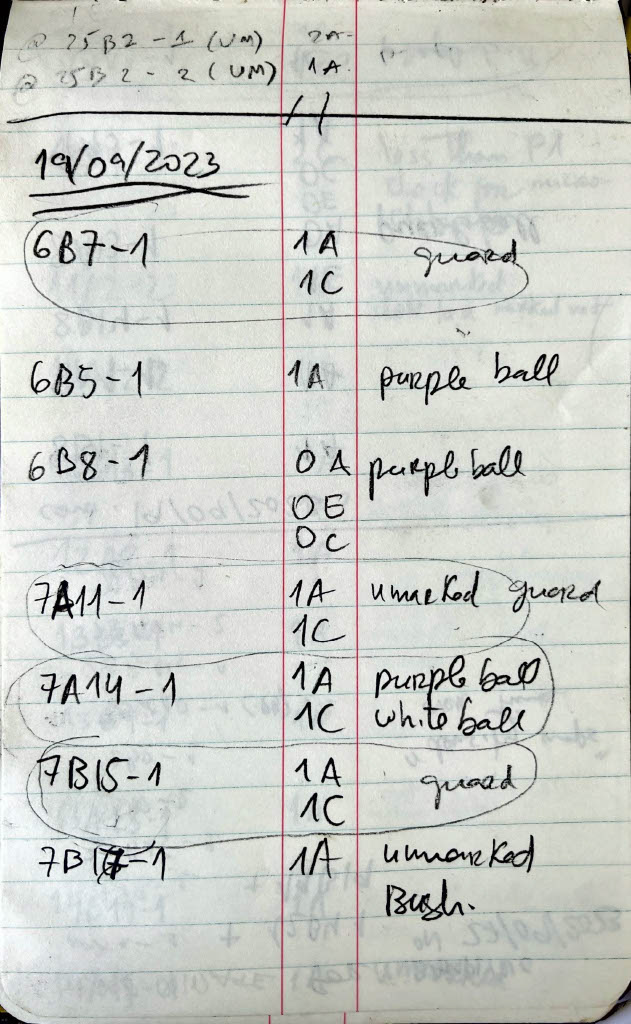 @ 25B2-1 (UM) 2A
@ 25B2-2 (UM) 1A
19/09/2023
6B7-1 1A guard
1C
6B5-1 1A purple ball
6B8-1 0A purple ball
0E
0C
7A11-1 1A umarked guard
1C
7A14-1 1A purple ball
1C white ball
7B15-1 1A guard
1C
7B17-1 1A unmarked
Bush.